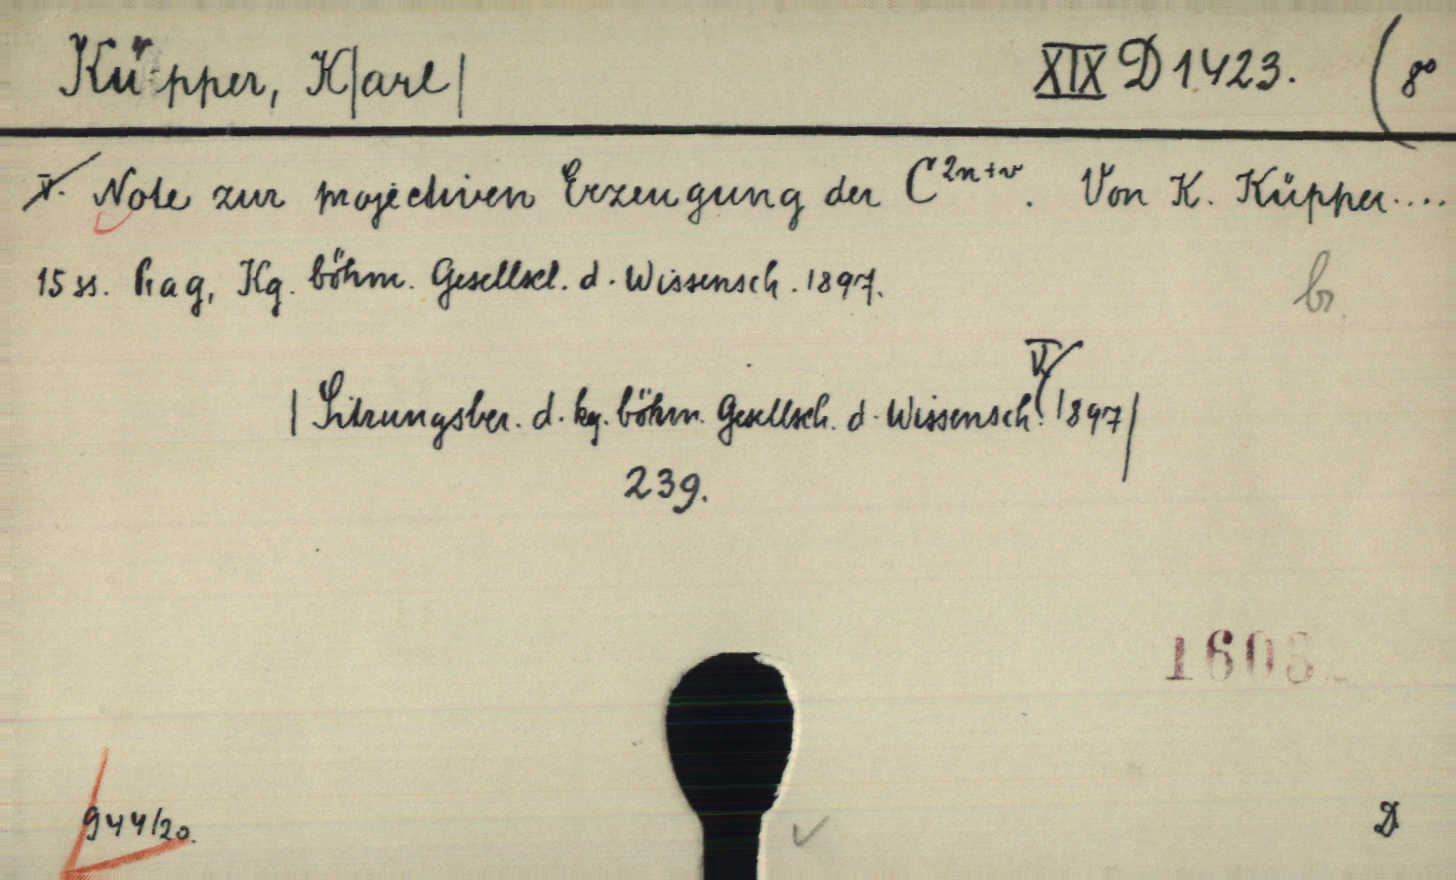 Küpper, K|arl| XIX D 1423. (8°
V. Note zur projectiven Erzeugung der C²ⁿ⁺ᵛ. Von K. Küpper....
15 ss. Prag, Kg. böhm. Gesellsch. d. Wissensch. 1897.
br.
V
| Sitzungsber. d. kg. böhm. Gesellsch. d. Wissensch. 1897|
239.
944/20.
D